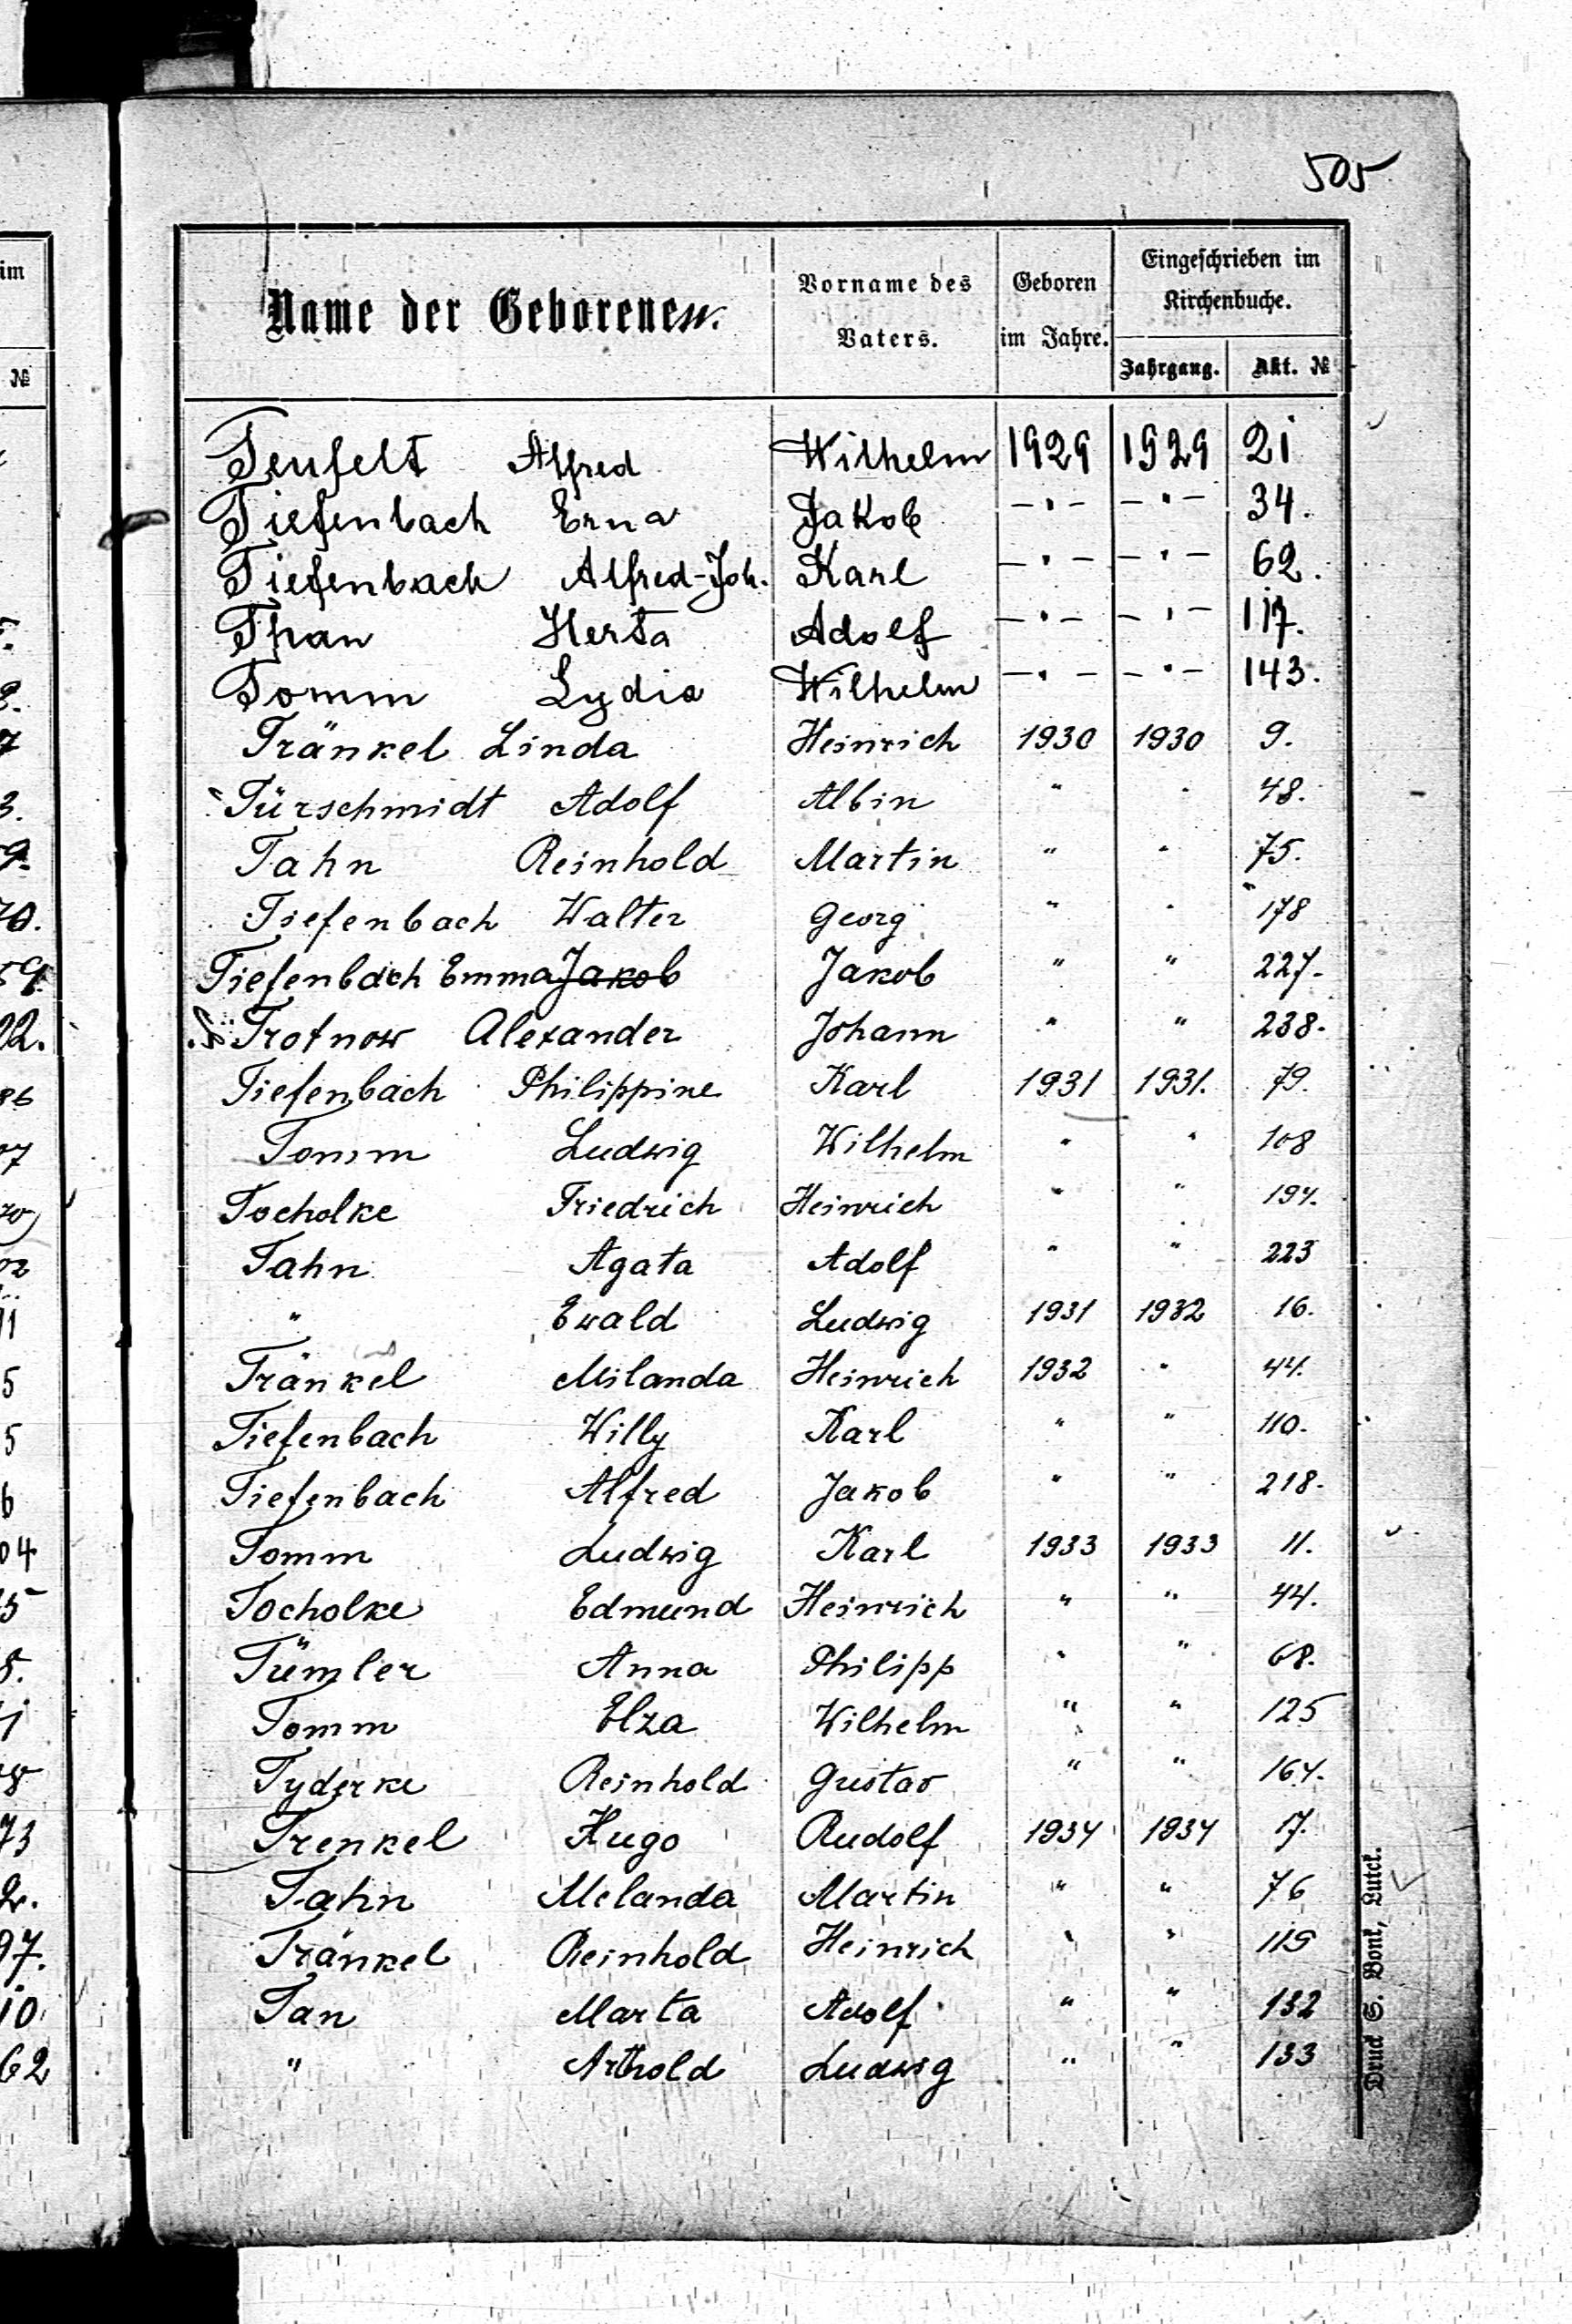 505
Name der Geborenen.
Vorname des Vaters.
Geboren im Jahre.
Eingeschrieben im Kirchenbuche.
Jahrgang. Akt. №
Teufelt Alfred Wilhelm 1929 1929 21
Tiefenbach Erna Jakob -"- -"- 34.
Tiefenbach Alfred-Joh. Karl -"- -"- 62.
Than Herta Adolf -"- -"- 117.
Tomm Lydia Wilhelm -"- -"- 143.
Tränkel Linda Heinrich 1930 1930 9.
Türschmidt Adolf Albin " " 48.
Tahn Reinhold Martin " " 75.
Tiefenbach Walter Georg " " 178
Tiefenbach Emma Jakob Jakob " " 227.
Trotnow Alexander Johann " " 238.
Tiefenbach Philippine Karl 1931 1931. 79.
Tomm Ludwig Wilhelm " " 108
Tocholke Friedrich Heinrich " " 194.
Tahn Agata Adolf " " 223
" Ewald Ludwig 1931 1932 16.
Tränkel Milanda Heinrich 1932 " 44.
Tiefenbach Willy Karl " " 110.
Tiefenbach Alfred Jakob " " 218.
Tomm Ludwig Karl 1933 1933 11.
Tocholke Edmund Heinrich " " 44.
Tümler Anna Philipp " " 68.
Tomm Elza Wilhelm " " 125
Tyderke Reinhold Gustav " " 164.
Trenkel Hugo Rudolf 1934 1934 17.
Tahn Melanda Martin " " 76
Tränkel Reinhold Heinrich " " 119
Tan Marta Adolf " " 132
" Arthold Ludwig " " 133
Druck S. Bonk, Lutck.